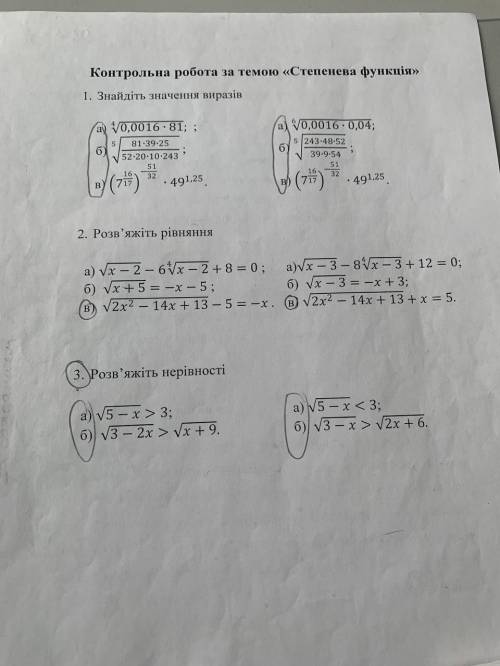 Контрольна робота за темою «Степенева функція»
1. Знайдіть значення виразів
а) ⁴√(0,0016 · 81); ;
б) ⁵√((81·39·25)/(52·20·10·243));
в) (7^(16/17))^(−51/32) · 49^(1,25).
а) ⁶√(0,0016 · 0,04);
б) ⁵√((243·48·52)/(39·9·54));
в) (7^(16/17))^(−51/32) · 49^(1,25).
2. Розв’яжіть рівняння
а) √(x − 2) − 6⁴√(x − 2) + 8 = 0 ;
б) √(x + 5) = −x − 5 ;
в) √(2x² − 14x + 13) − 5 = −x .
а) √(x − 3) − 8⁴√(x − 3) + 12 = 0;
б) √(x − 3) = −x + 3;
в) √(2x² − 14x + 13) + x = 5.
3. Розв’яжіть нерівності
а) √(5 − x) > 3;
б) √(3 − 2x) > √(x + 9).
а) √(5 − x) < 3;
б) √(3 − x) > √(2x + 6).